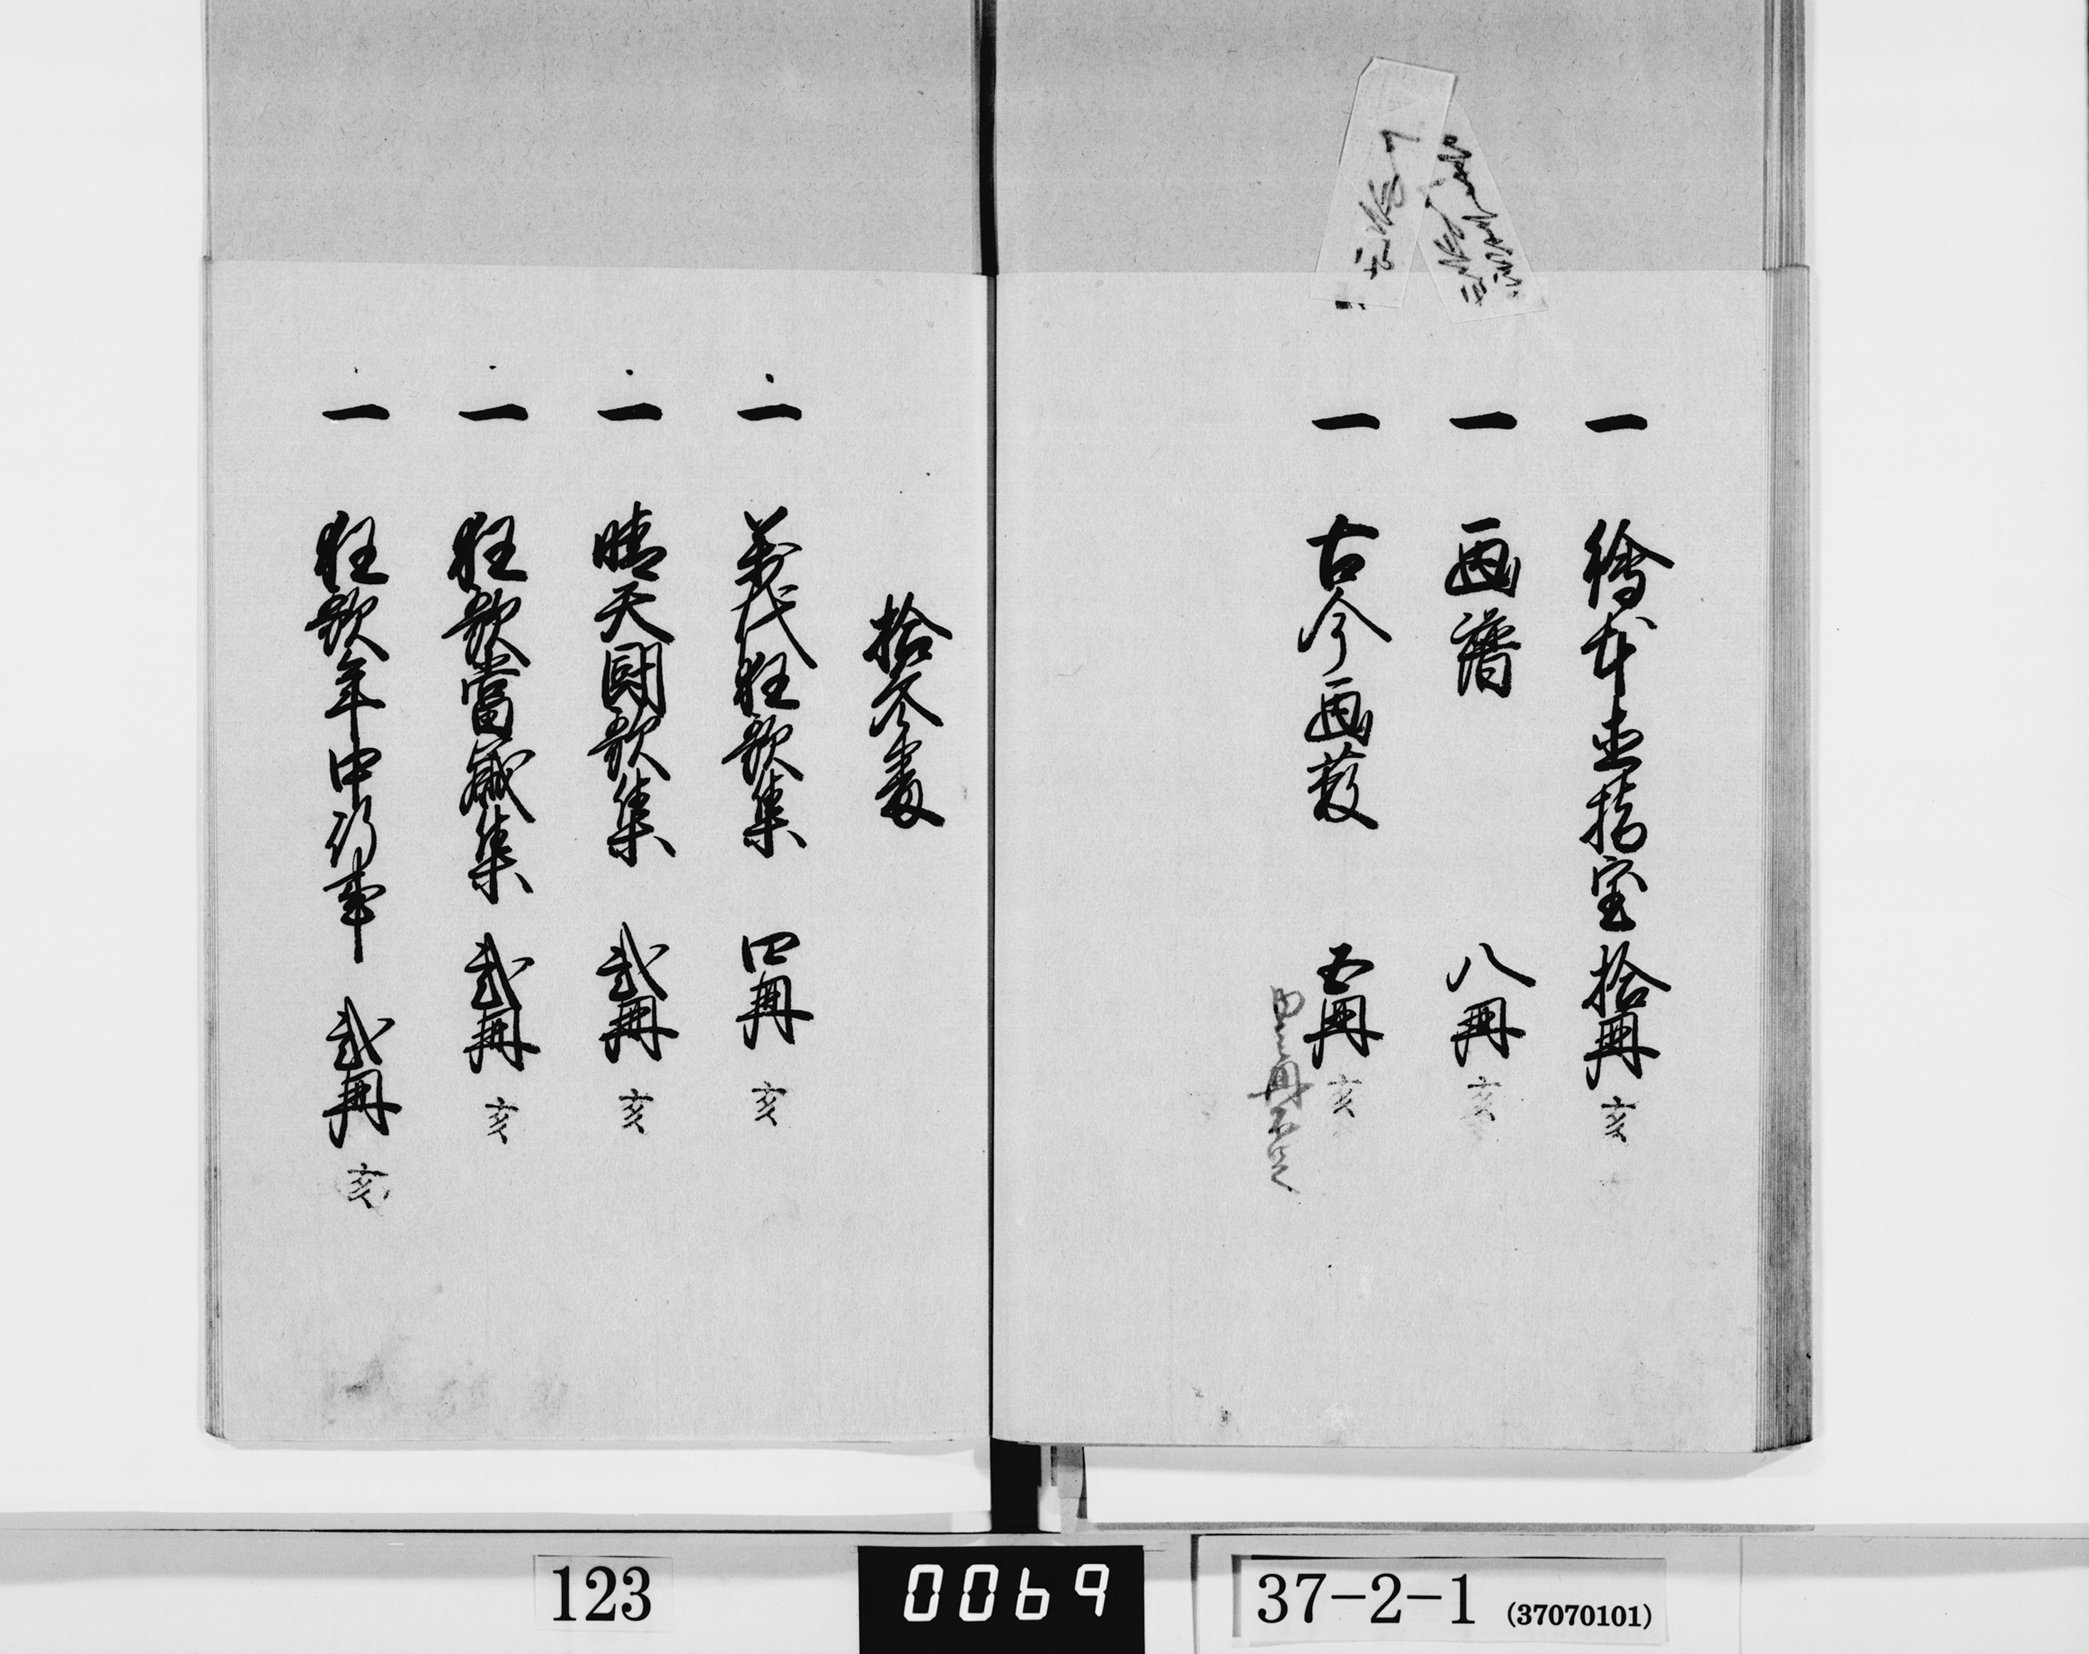 一 繪本直指宝 拾冊 亥
一 画譜 八冊 亥
一 古今画薮 五冊 亥
拾番
一 萬代狂歌集 四冊 亥
一 晴天闘歌集 弐冊 亥
一 狂歌當載集 弐冊 亥
一 狂歌年中行事 弐冊 亥
123
0069
37-2-1 (37070101)